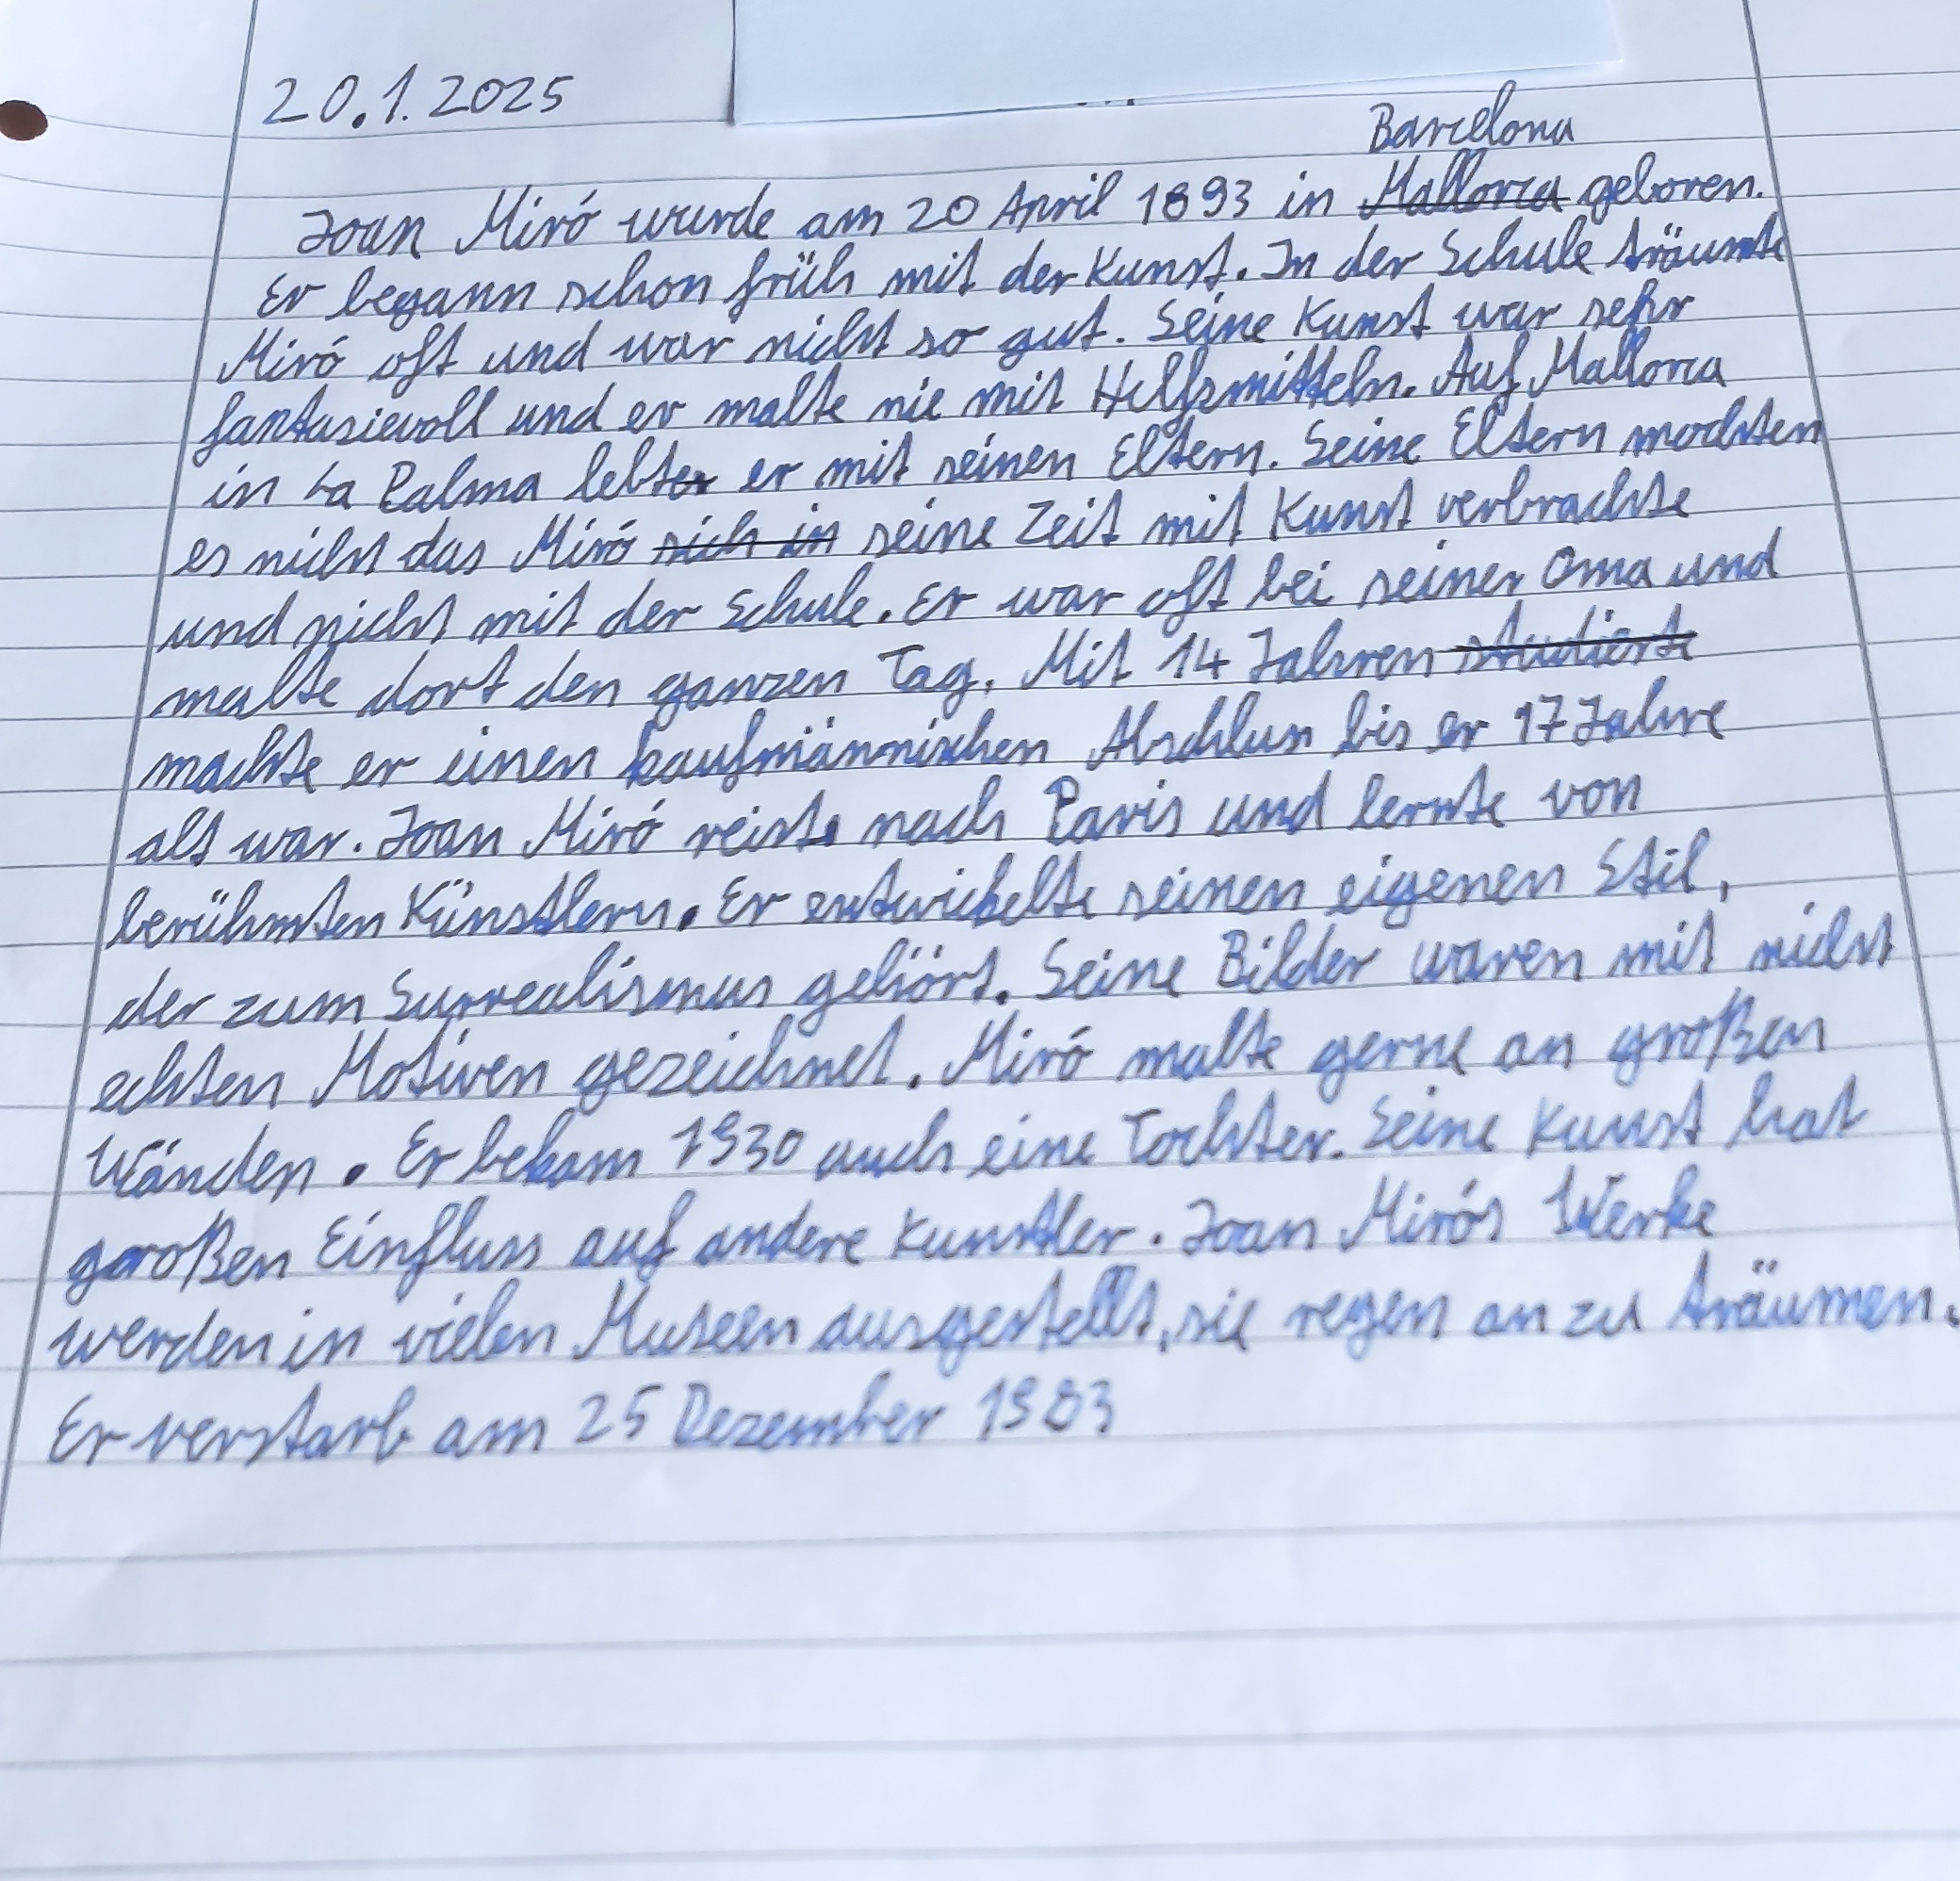 20.1.2025
Barcelona
Joan Miró wurde am 20 April 1893 in Mallorca geboren.
Er begann schon früh mit der Kunst. In der Schule träumte
Miró oft und war nicht so gut. Seine Kunst war sehr
fantasievoll und er malte nie mit Hilfsmitteln. Auf Mallorca
in La Palma lebten er mit seinen Eltern. Seine Eltern mochten
es nicht das Miró sich in seine Zeit mit Kunst verbrachte
und nicht mit der Schule. Er war oft bei seiner Oma und
malte dort den ganzen Tag. Mit 14 Jahren studierte
machte er einen kaufmännischen Abschluss bis er 17 Jahre
alt war. Joan Miró reiste nach Paris und lernte von
berühmten Künstlern. Er entwickelte seinen eigenen Stil,
der zum Surrealismus gehört. Seine Bilder waren mit nicht
echten Motiven gezeichnet. Miró malte gerne an großen
Wänden. Er bekam 1930 auch eine Tochter. Seine Kunst hat
großen Einfluss auf andere Kunstler. Joan Mirós Werke
werden in vielen Museen ausgestellt, sie regen an zu träumen.
Er verstarb am 25 Dezember 1983